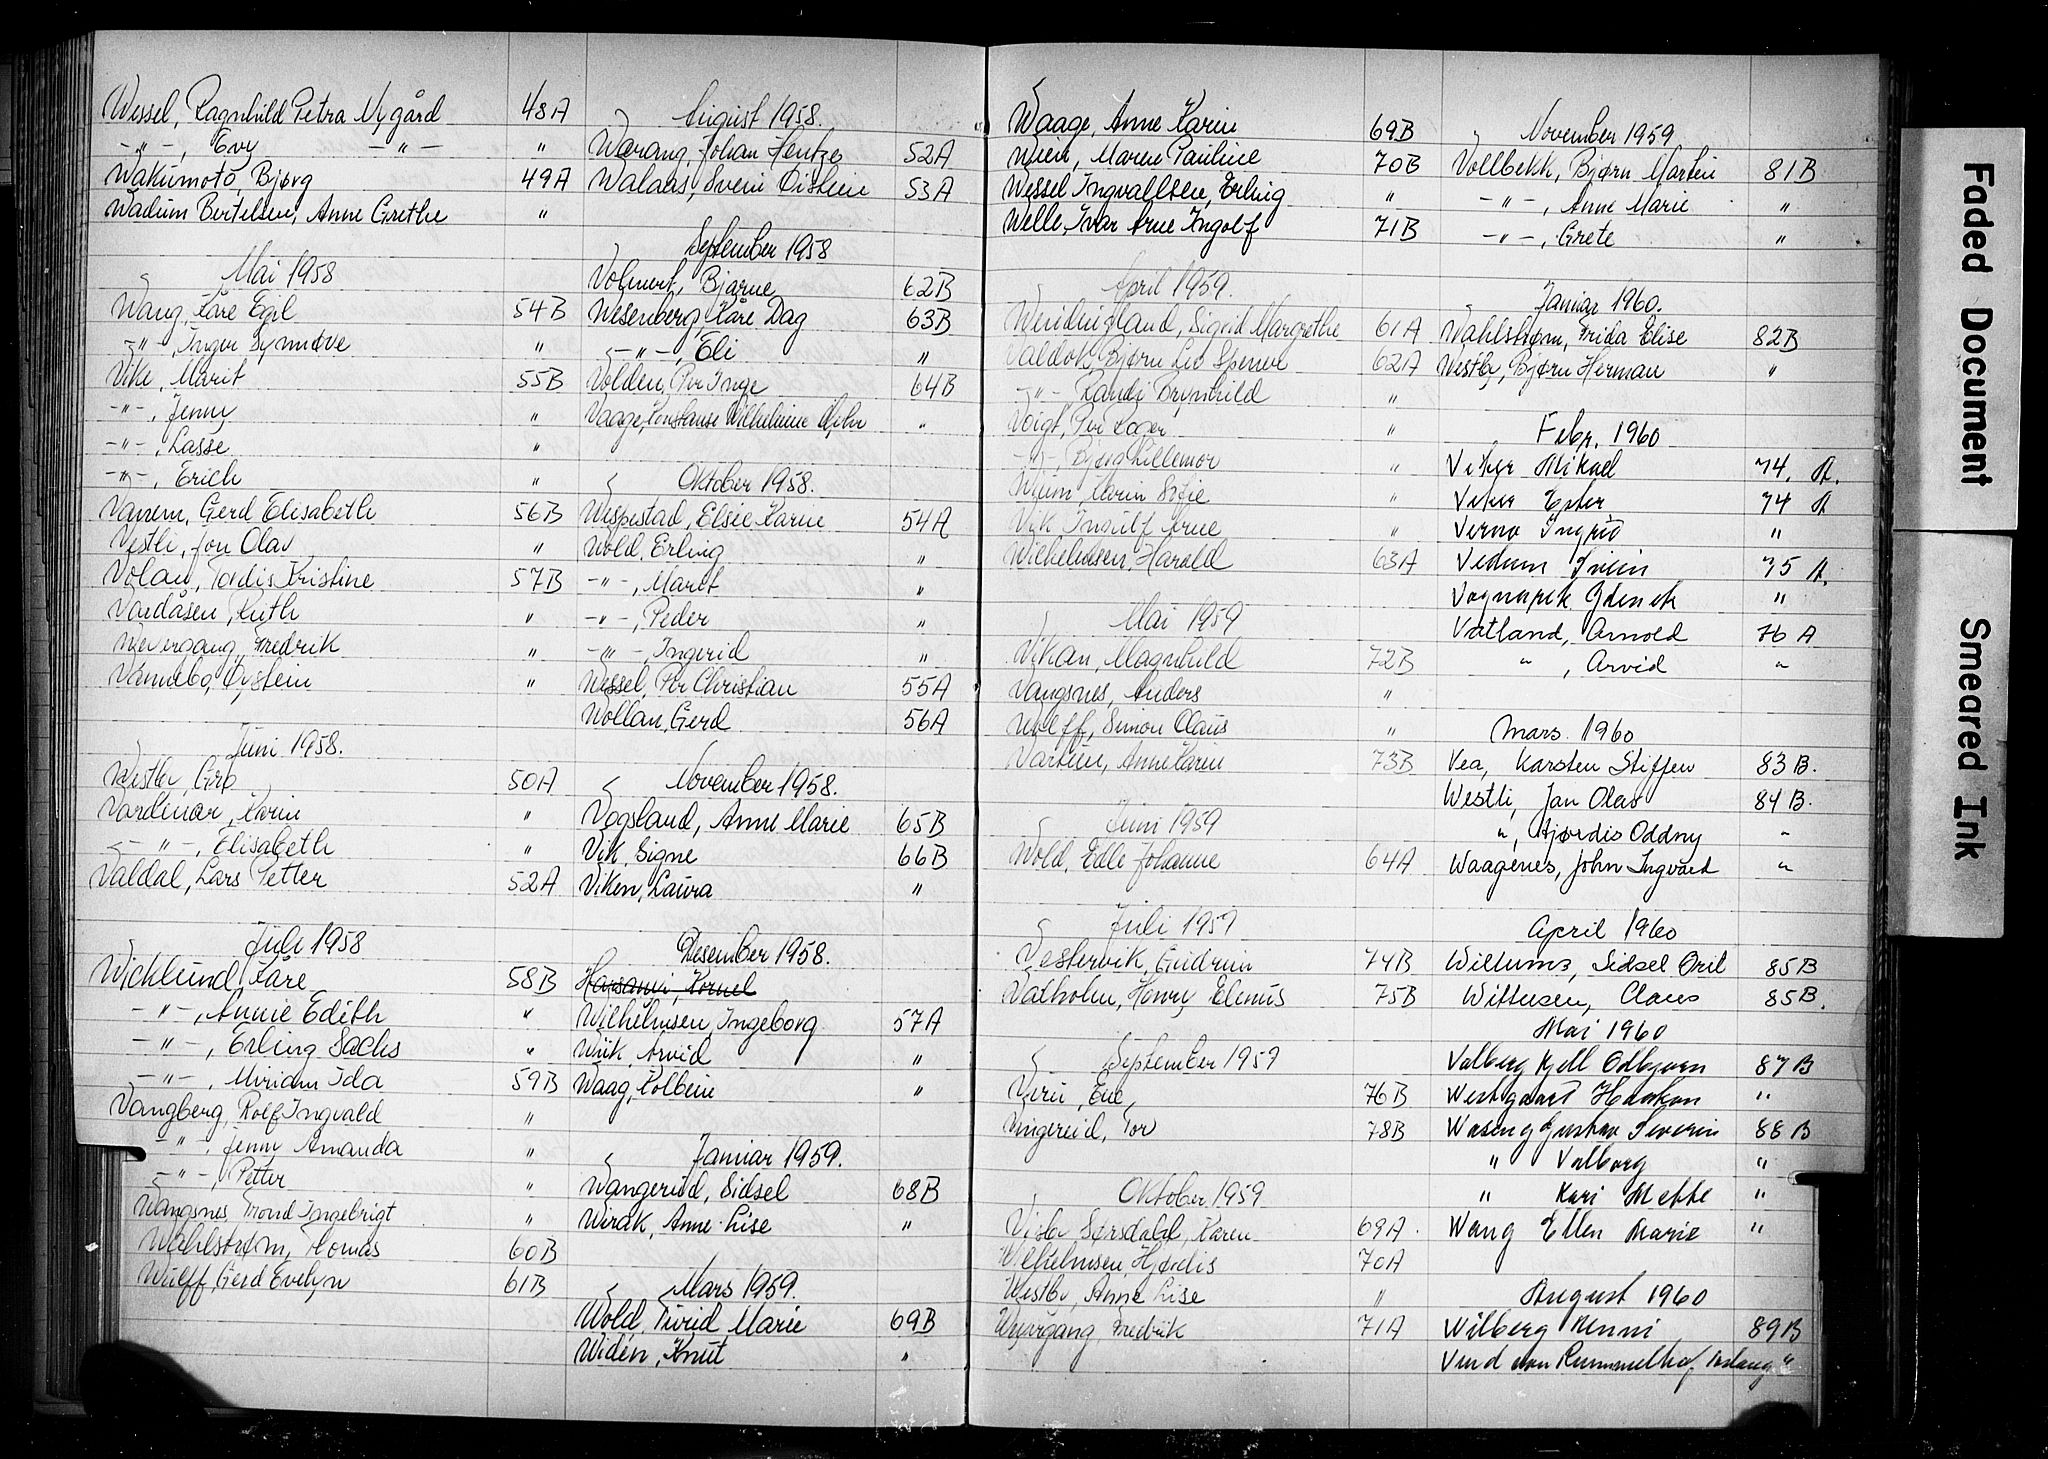 Wessel, Ragnhild Petra Nygård 48A
-"-, Evy -"- "
Wakumoto, Bjørg 49A
Wadum Bertelsen, Anne Grethe "
Mai 1958
Wang, Kåre Egil 54B
-"-, Inger Synnøve "
Vike, Marit 55B
-"-, Jenny "
-"-, Lasse "
-"-, Erich "
Vanem, Gerd Elisabeth 56B
Vestli, Jon Olav "
Volau, Tordis Kristine 57B
Vardåsen, Ruth "
Wevergang, Fredrik "
Vannebo, Øystein "
Juni 1958.
Westby, Gro 50A
Vardmar, Karin "
-"-, Elisabeth "
Valdal, Lars Petter 52A
Juli 1958
Wicklund Kåre 58B
-"-, Annie Edith "
-"-, Erling Sachs "
-"-, Miriam Ida 59B
Vangberg, Rolf Ingvald "
-"- Jenny Amanda "
-"-, Petter "
Wangsnes, Trond Ingebrigt "
Wahlstrøm, Thomas 60B
Wulff, Gerd Evelyn 61B
August 1958.
Warang, Johan Hentze 52A
Walaas, Svein Øistein 53A
September 1958
Volmert, Bjarne 62B
Wesenberg, Kåre Dag 63B
-"-, Eli "
Volden, Per Inge 64B
Vaage, Konstanse Wilhelmine "
Oktober 1958.
Wespestad, Elsie Karin 54A
Wold, Erling "
-"-, Marit "
-"-, Peder "
-"-, Ingerid "
Wessel, Per Christian 55A
Wollan, Gerd 56A
November 1958.
Vogsland, Anne Marie 65B
Vik, Signe 66B
Viken, Laura "
Desember 1958.
Harsanyi, Kornel
Wilhelmsen, Ingeborg 57A
Wiik, Arvid "
Waag, Kolbein "
Januar 1959.
Wangerud, Sidsel 68B
Wirak, Anne-Lise "
Mars 1959.
Wold, Turid Marie 69B
Widén, Knut "
Waage, Anne Karin 69B
Wien, Maren Pauline 70B
Wessel Ingvallsen, Erling "
Welle, Ivar Arne Ingolf 71B
April 1959.
Wendingland, Sigrid Margrethe 61A
Valdok, Bjørn Leo Spenve 62A
-"- Randi Brynhild "
Voigt, Per Roger "
-"-, Bjørg Lillemor "
Wium, Karin Sofie "
Vik Ingulf Arne "
Wilhelmsen, Harald 63A
Mai 1959
Vikan, Magnhild 72B
Vangsnes, Anders "
Wolff, Simon Claus "
Vartun, Anne Karin 73B
Juni 1959
Wold, Edle Johanne 64A
Juli 1959
Vestervik, Gudrun 74B
Vatholm, Henry Elenus 75B
September 1959
Viru, Ene, 76B
Vingereid, Tor 78B
Oktober 1959
Visby Sørsdahl, Karen 69A.
Wilhelmsen, Hjørdis 70A
Westby, Anne Lise "
Wevergang, Fredrik 71A
November 1959
Vollbekk, Bjørn Martin 81B
-"-, Anne Marie "
-"-, Grete "
Januar 1960.
Wahlstrøm, Frida Elise 82B
Westby, Bjørn Herman "
Febr. 1960
Viker Mikael 74. A.
Viker Ester 74 A
Vernø Ingrid "
Vedum Svein 75 A.
Vognapek Zdenek "
Vatland, Arnold 76 A
" , Arvid "
Mars 1960
Vea, Karsten Steffen 83B.
Westli, Jan Olav 84B.
", Hjørdis Oddny "
Waagenes, John Ingvard "
April 1960
Willums, Sidsel Oril 85B
Wittusen, Claus 85B.
Mai 1960
Valberg Kjell Odbjørn 87B
Westgaart Haakon "
Waseng Gustav Severin 88B
" Valborg "
" Kari Mette "
Wang Ellen Marie "
August 1960
Wilberg Unni 89B
Vind von Rummelhof, "
Faded Document
Smeared Ink